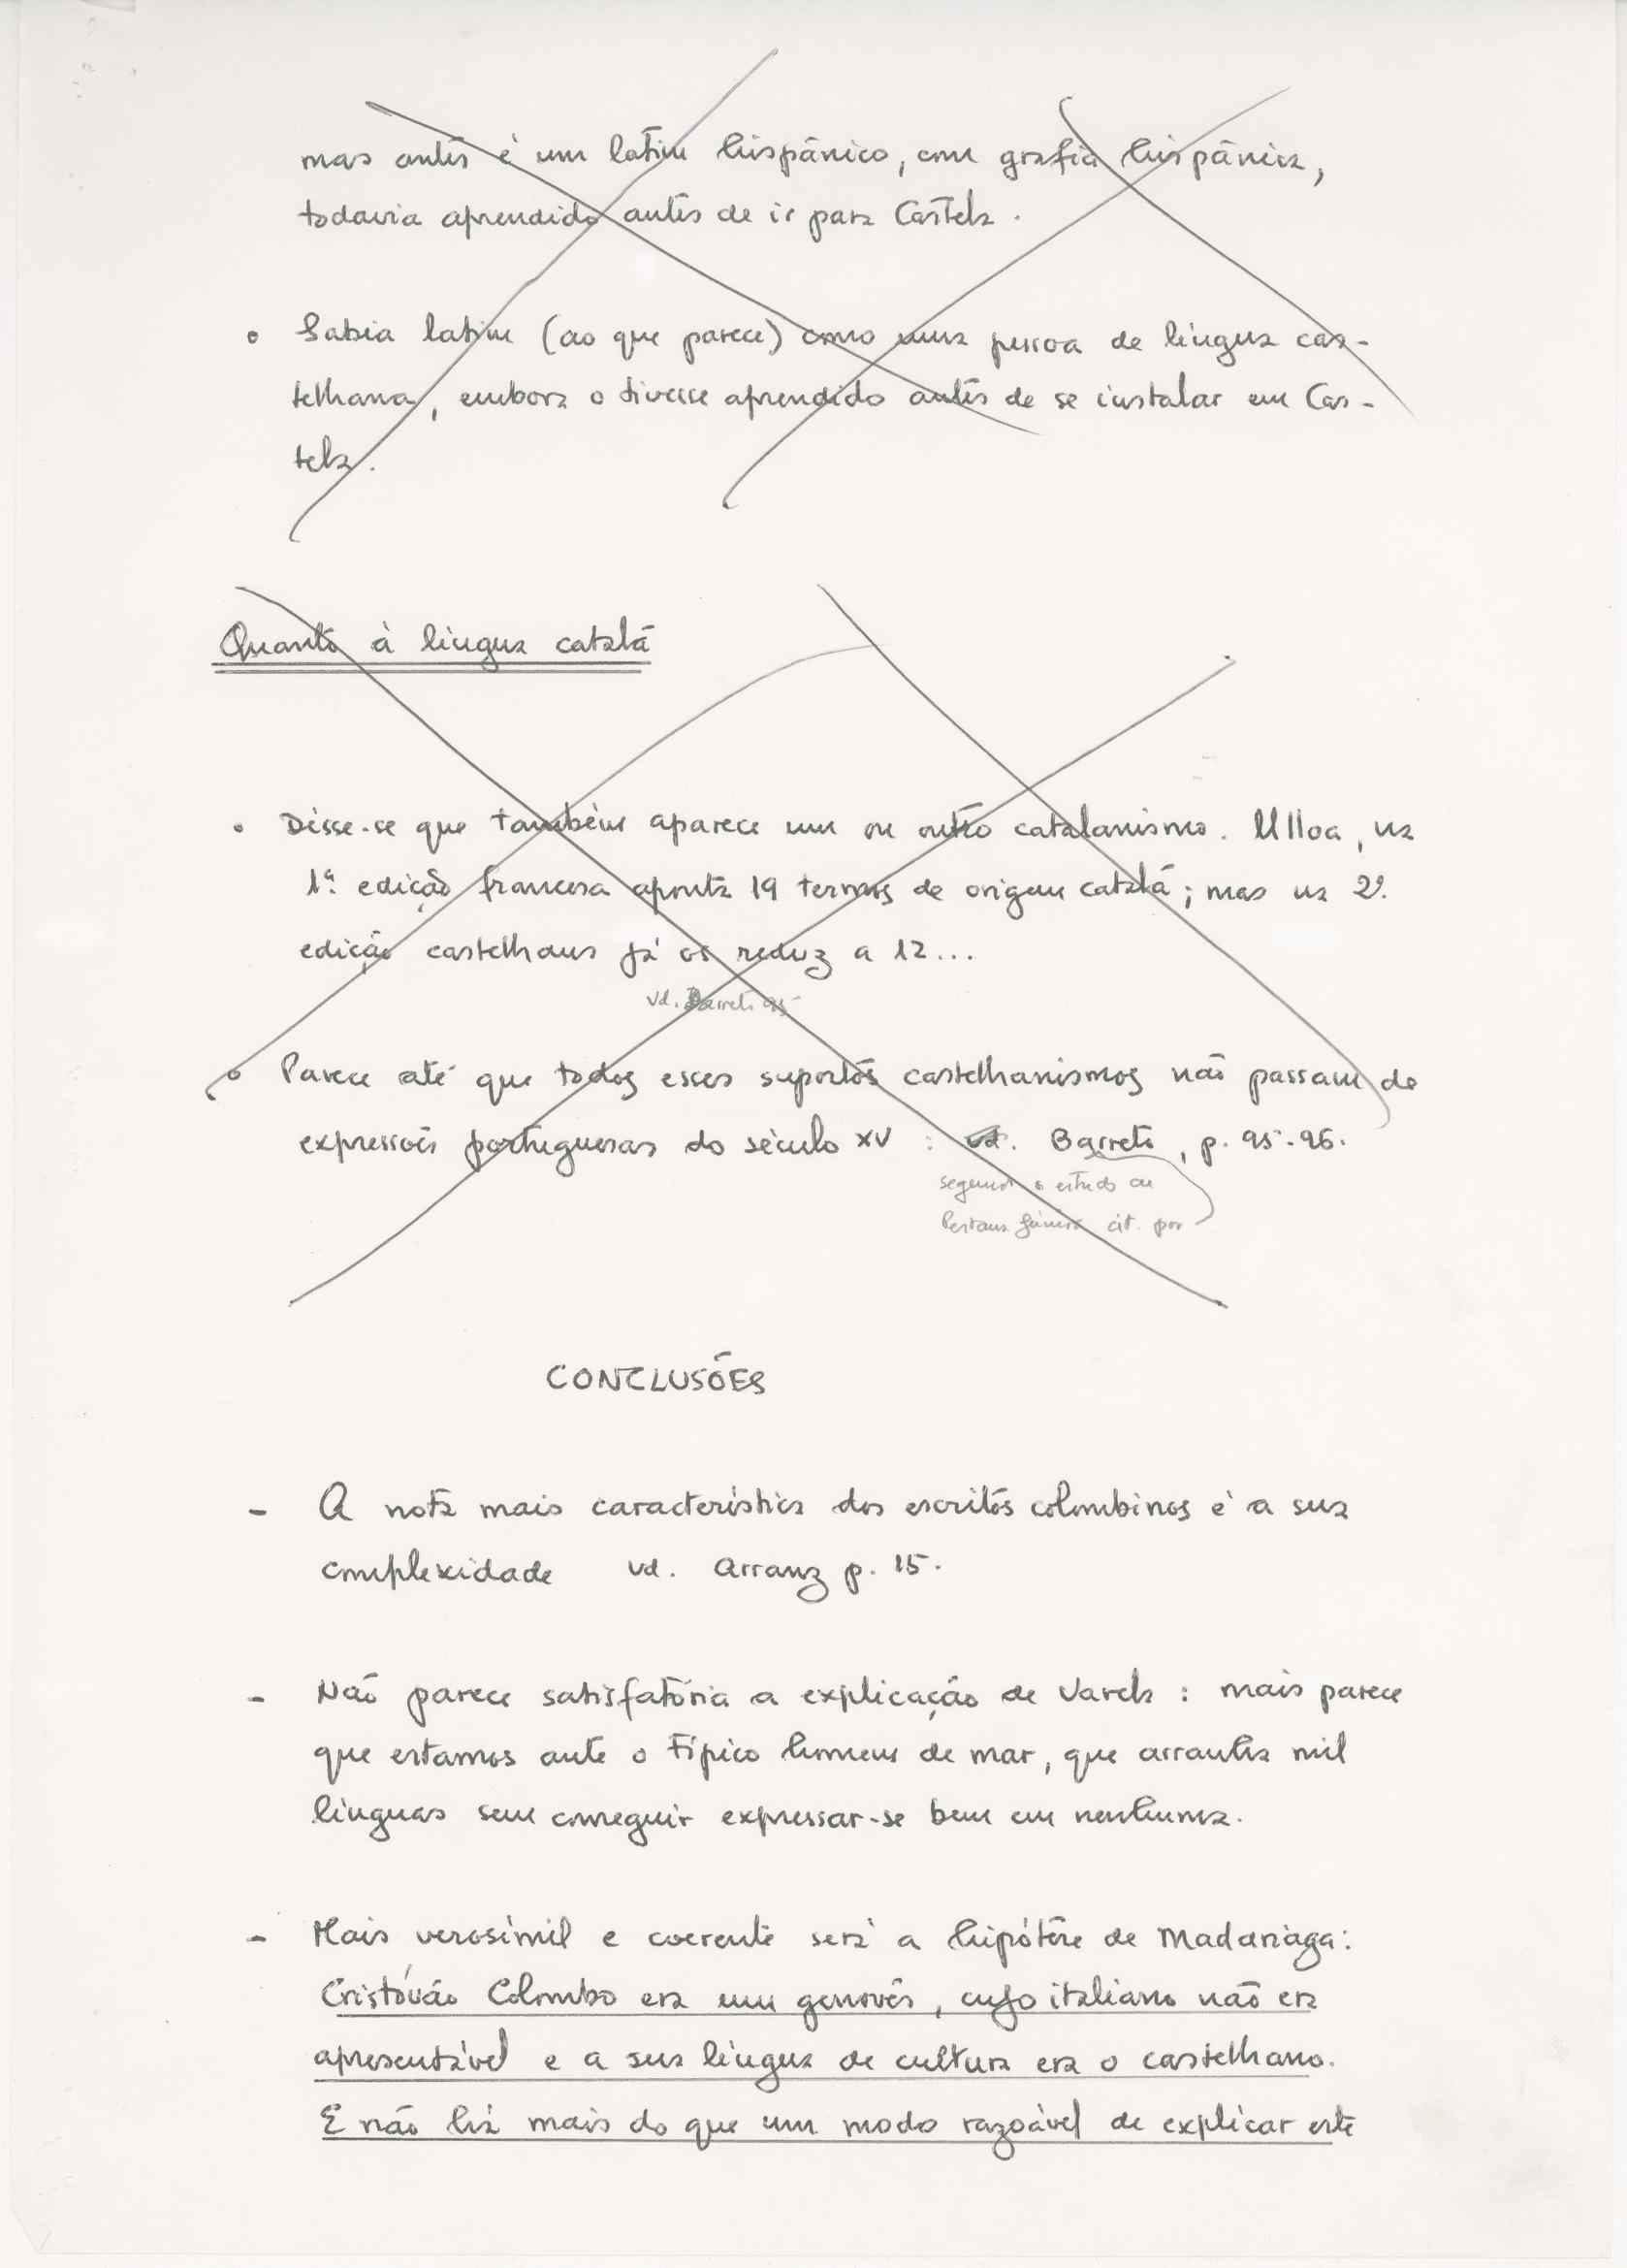 mas antes é um latim hispânico, com grafia hispânica,
todavia aprendido antes de ir para Castela.
• Sabia latim (ao que parece) como uma pessoa de língua cas-
telhana, embora o tivesse aprendido antes de se instalar em Cas-
tela.
Quanto à língua catalã
• Disse-se que também aparece um ou outro catalanismo. Ulloa, na
1ª. edição francesa aponta 19 termos de origem catalã; mas na 2ª.
edição castelhana já os reduz a 12...
vd. Barreto 95
• Parece até que todos esses supostos castelhanismos não passam de
expressões portuguesas do século XV : vd. Barreto, p. 95-96.
segundo o estudo de
Pestana Júnior cit. por
CONCLUSÕES
- A nota mais característica dos escritos colombinos é a sua
complexidade vd. Arranz p. 15.
- Não parece satisfatória a explicação de Varela : mais parece
que estamos ante o típico homem de mar, que arranha mil
línguas sem conseguir expressar-se bem em nenhuma.
- Mais verosímil e coerente será a hipótese de Madariaga:
Cristóvão Colombo era um genovês, cujo italiano não era
apresentável e a sua língua de cultura era o castelhano.
E não há mais do que um modo razoável de explicar este